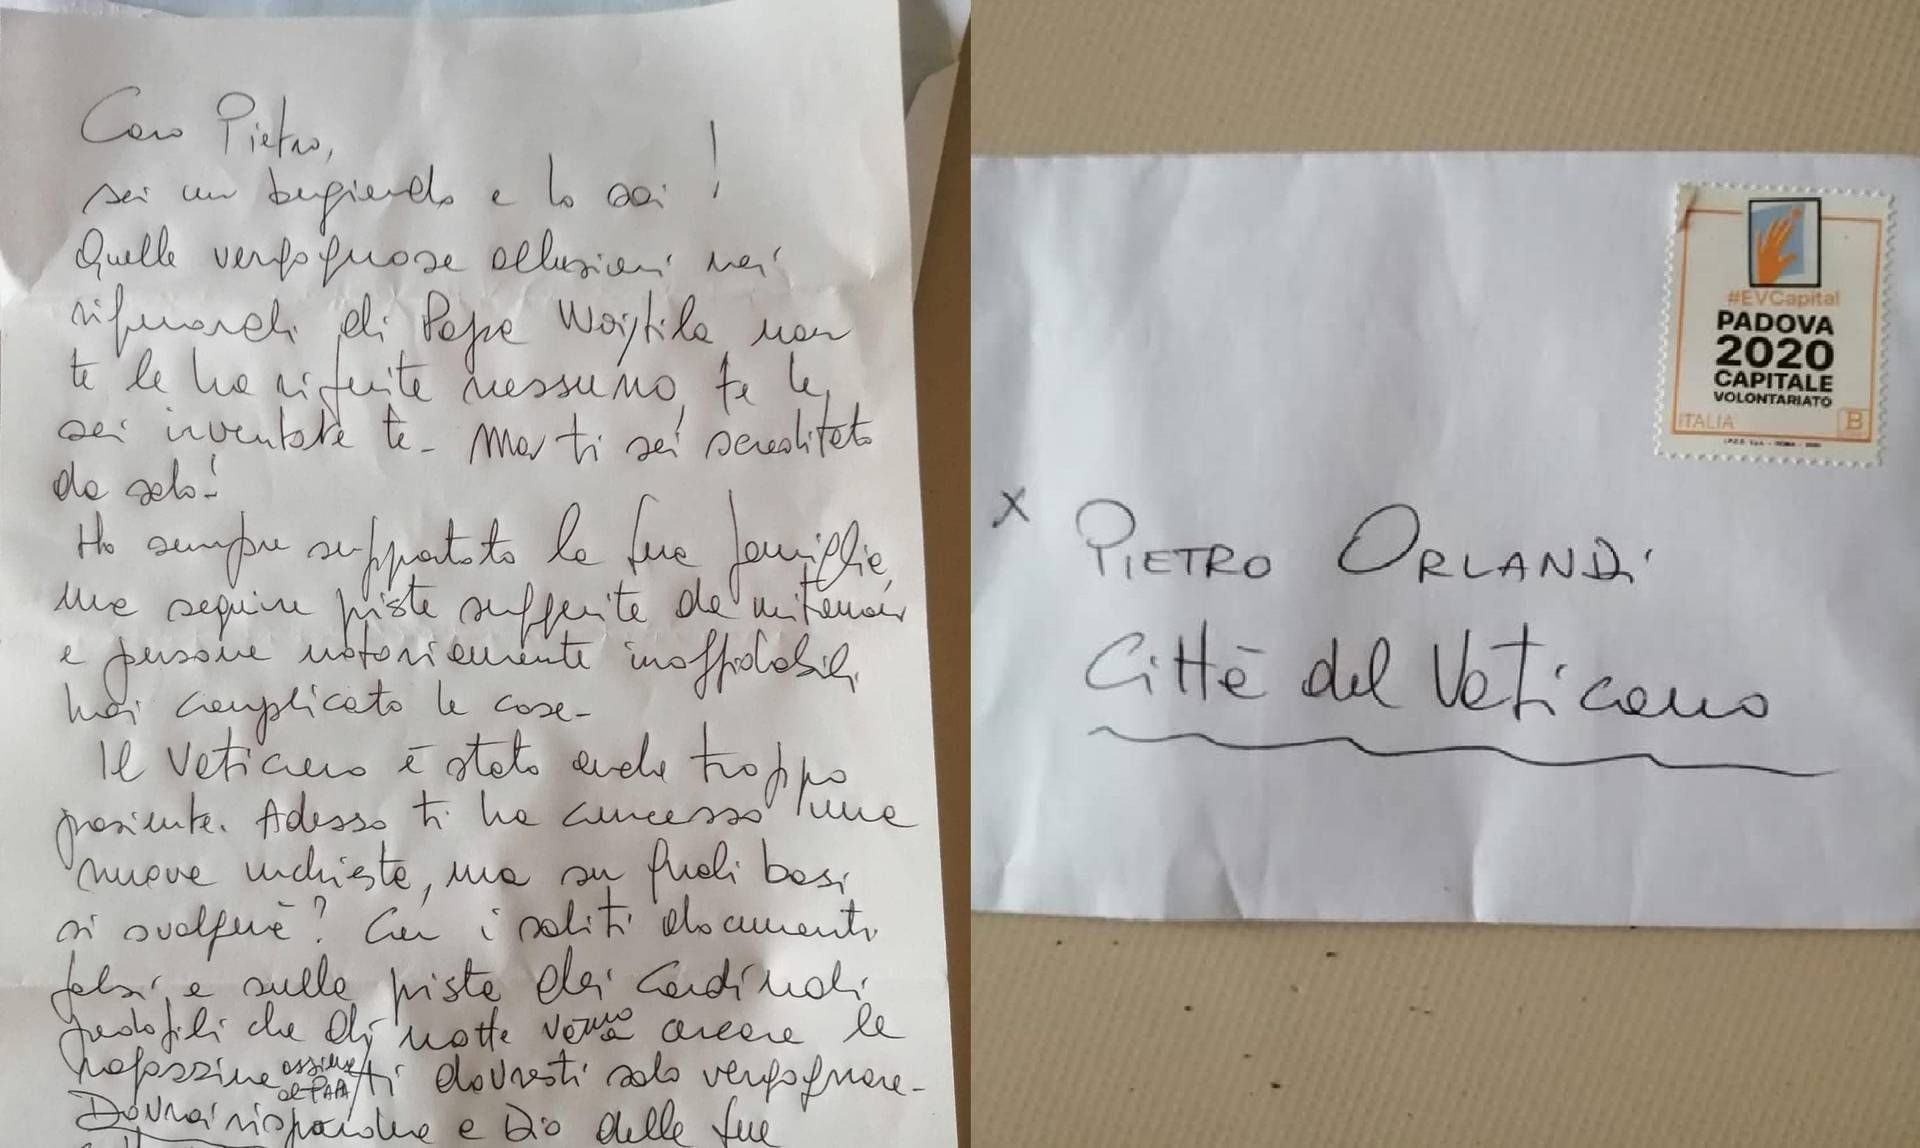 Caro Pietro,
sei un bugiardo e lo sai!
Quelle vergognose allusioni nei
riguardi di Papa Wojtila non
te le ha riferite nessuno, te le
sei inventate te. Ma ti sei screditato
da solo!
Ho sempre supportato la tua famiglia,
ma seguire piste suggerite da mitomani
e persone notoriamente inaffidabili
hai complicato le cose.
Il Vaticano è stato anche troppo
paziente. Adesso ti ha concesso una
nuova inchiesta, ma su quali basi
si svolgerà? Con i soliti documenti
falsi, e sulla pista dei Cardinali
pedofili che di notte vanno a cercare le
ragazzine assieme al PAPA, ti dovresti solo vergognare.
Dovrai rispondere a Dio delle tue
#EVCapital
PADOVA
2020
CAPITALE
VOLONTARIATO
ITALIA B
x PIETRO ORLANDi
Città del Vaticano